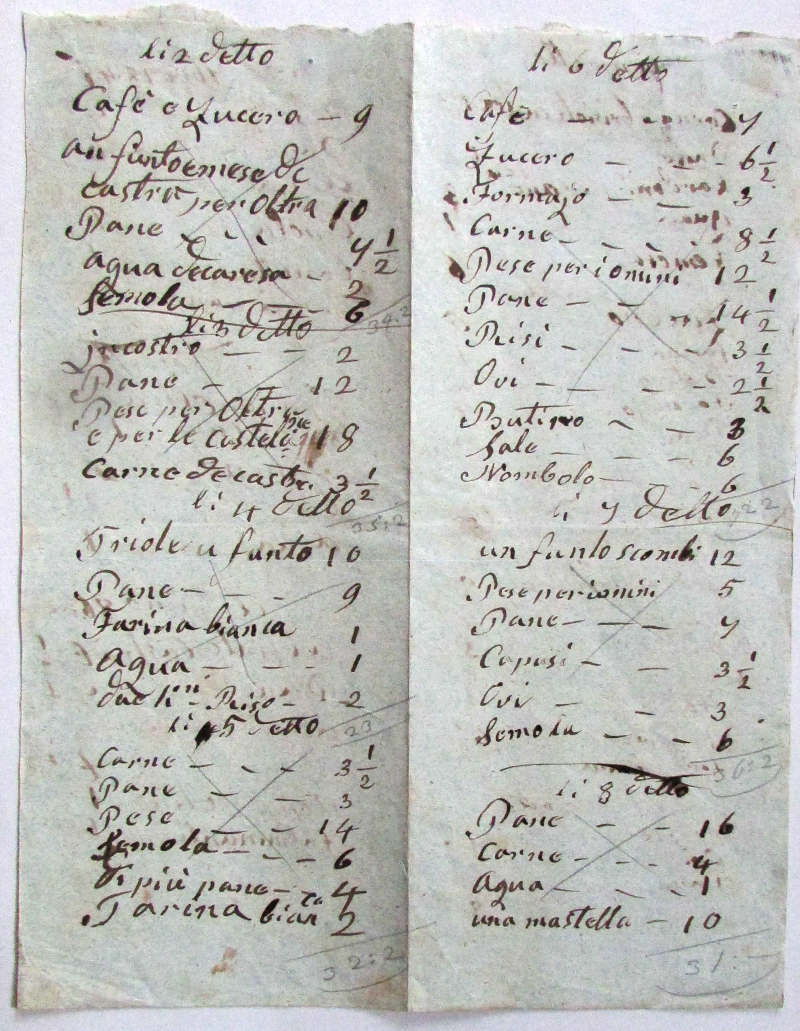 li 2 detto
Cafè e Zucero – 9
un funto e mese di
castrà per Oltra 10
Pane - - - 4 1/2
agua de caresa – 2
Semola — — 6
34:2
li 3 detto
incostro — — 2
Pane — — 12
Pese per Oltra
e per le 18
Carne de castr. 3 1/2
35:2
li 4 detto
Triole u funto 10
Pane — - — 9
Farina bianca 1
Agua — - - - 1
Riso — 2
23
li 5 detto
Carne - - - 3 1/2
Pane - — 3
Pese — — 14
Semola — - - 6
di più pane — 4
Farina bianca 2
32:2
li 6 detto
Cafè — 4
Zucero — - — 6 1/2
Formajo — — 3
Carne - - - 8 1/2
Pese per i omini 12
Pane — — 14 1/2
Risi - - - 3 1/2
Ovi — - - - 2 1/2
Butiro - - 3
Sale - - - 6
Nombolo — - 6
li 7 detto
un funto scombi 12
Pese per i omini 5
Pane — — - 4
Capusi — — 3 1/2
Ovi - - - 3
Semola - - - 6
36:2
li 8 detto
Pane - — - 16
Carne — - - 4
Agua — - - 1
una mastella — 10
31:—